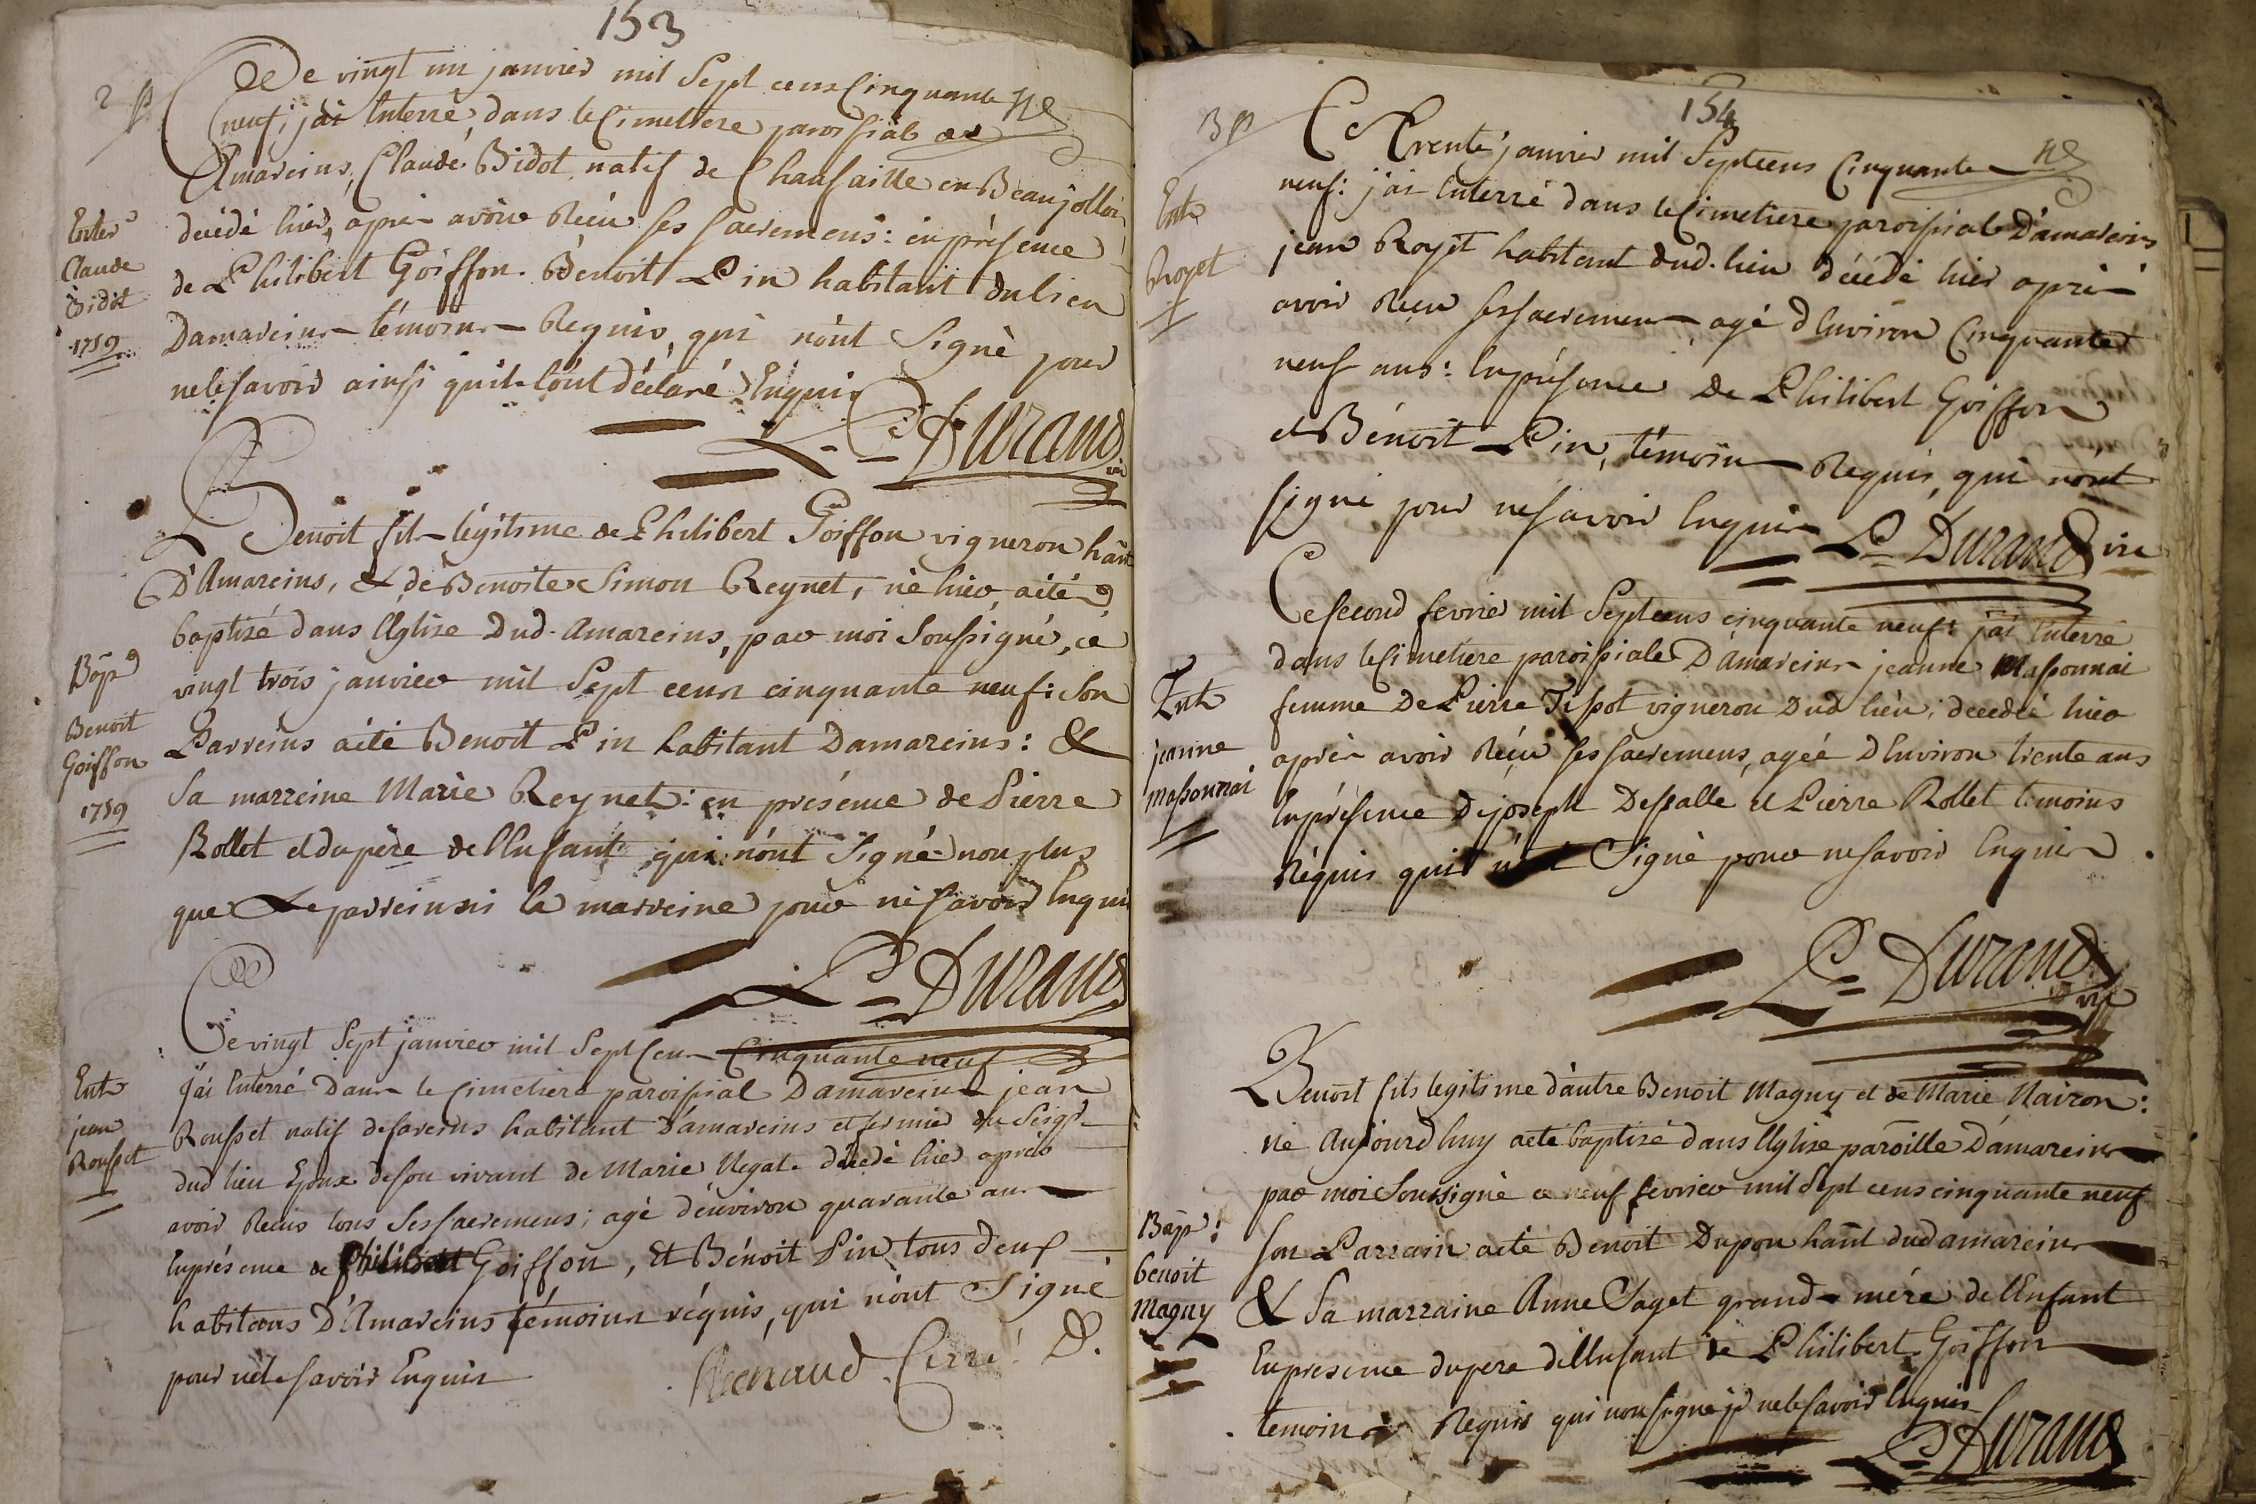 153
2 p
Ce vingt un janvier mil Sept cens Cinquante
neuf; j'ai Enterré, dans le Cimetiere paroissial de
Amareins, Claude Bidot natif de Chaufaille en Beaujollois
décédé hier, après avoir Réçu ses sacremens: en présence
de Philibert Goiffon. Bénoit Pin habitant du lieu
Damareins témoins Requis, qui n'ont Signè pour
ne le savoir ainsi qu'ils l'ont déclaré Enquis
P. Durand
Enter
Claude
Bidot
1759
Benoit fils légitime de Philibert Goiffon vigneron hant
D'Amareins, & de Benoite Simon Reynet, né hier, a été
baptizé dans l'Eglise Dud. Amareins, par moi Soussigné, ce
vingt trois janvier mil Sept cens cinquante neuf: Son
Parreins a été Benoit Pin habitant Damareins: &
Sa marreine Marie Reynet: en présence de Pierre
Rollet et du père de l'Enfant qui n'ont Signé non plus
que Le parrein ni la marreine pour ne savoir Enquis
P. Durand
Bap
Benoit
Goiffon
1759
Ce vingt Sept janvier mil Sept Cens Cinquante neuf
J'ai Enterré Dans le Cimetiere paroissial Damareins jean
Rousset natif de fareins habitant D'amareins et fermier du Seigr
dud lieu Epoux de son vivant de Marie Negat. décedé hier après
avoir Reçus tous Ses sacremens; agé d'environ quarante ans
En présence de Philibert Goiffon, Et Bénoit Pin tous deux
habitans D'Amareins témoins réquis, qui n'ont Signé
pour ne le savoir Enquis
Renaud. Curé. D.
Ent
jean
Rousset
154
3 p
Ce Trente janvier mil Septcens Cinquante
neuf: j'ai Enterré dans le Cimetiere paroissial D'amareins
jean Royet habitant dud. lieu décédé hier après
avoir Reçu ses sacremens agé d'Environ Cinquante
neuf ans: En présence de Philibert Goiffon
et Bénoit Pin, témoins Requis, qui n'ont
signé pour ne savoir Enquis P. Durand vic
Ent
Royet
Ce second fevrier mil Septcens cinquante neuf: j'ai Enterré
dans le Cimetiere paroissiale D'Amareins jeanne Massonnai
femme de Pierre Tissot vigneron Dud lieu; decedée hier
après avoir Réçu ses sacremens, agée d'Environ trente ans
En présence de joseph Dessalle et Pierre Rollet temoins
Réquis qui n'ont Signé pour ne savoir Enquis
P. Durand
vic
Ent
jeanne
Massonnai
Benoit fils legitime d'autre Benoit Magny et de Marie Nairon:
né Aujourdhuy a eté baptizé dans l'Eglise paroille D'amareins
par moi Soussigné ce neuf fevrier mil Sept cens cinquante neuf
son Parrain a eté Benoit Dupon hant dud amareins
& Sa marraine Anne Saget grand mère de l'Enfant
En presence du pere de l'Enfant de Philibert Goiffon
temoins Requis qui non signé pr ne le savoir Enquis
P. Durand
Bap:
benoit
Magny